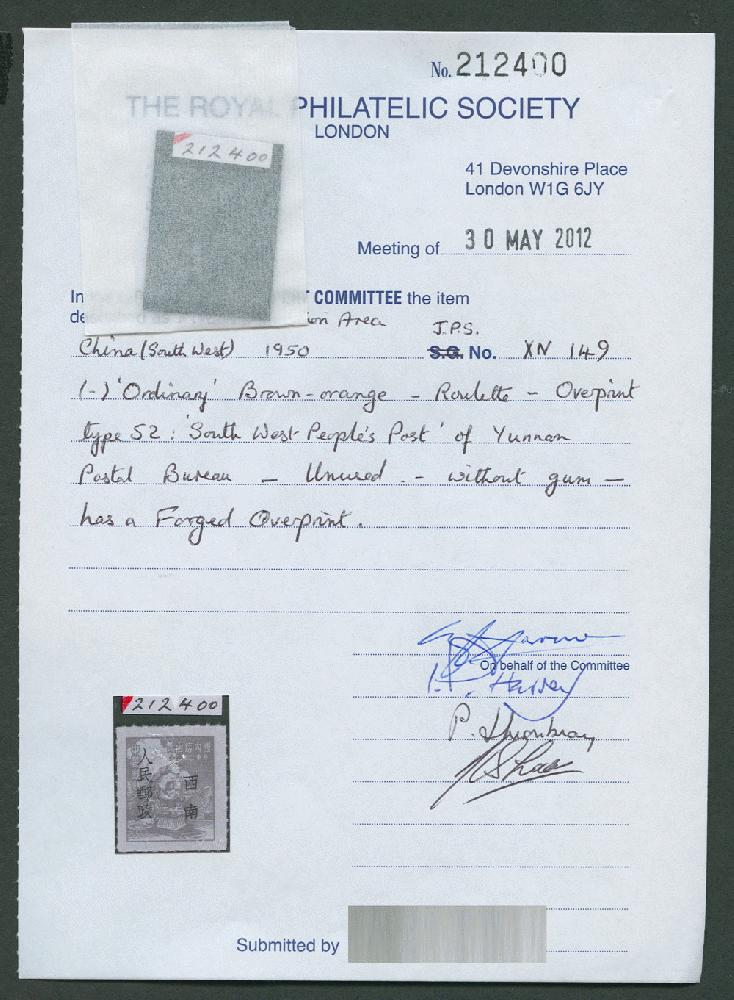 No. 212400
THE ROYAL PHILATELIC SOCIETY
LONDON
212400
41 Devonshire Place
London W1G 6JY
Meeting of 30 MAY 2012
In COMMITTEE the item
de Area
J.P.S.
China (South West) 1950 S.G. No. XN 149
(-) 'Ordinary' Brown-orange - Roulette - Overprint
type S2: 'South West People's Post' of Yunnan
Postal Bureau - Unused - without gum -
has a Forged Overprint.
On behalf of the Committee
212400
人民郵政
西南
Submitted by